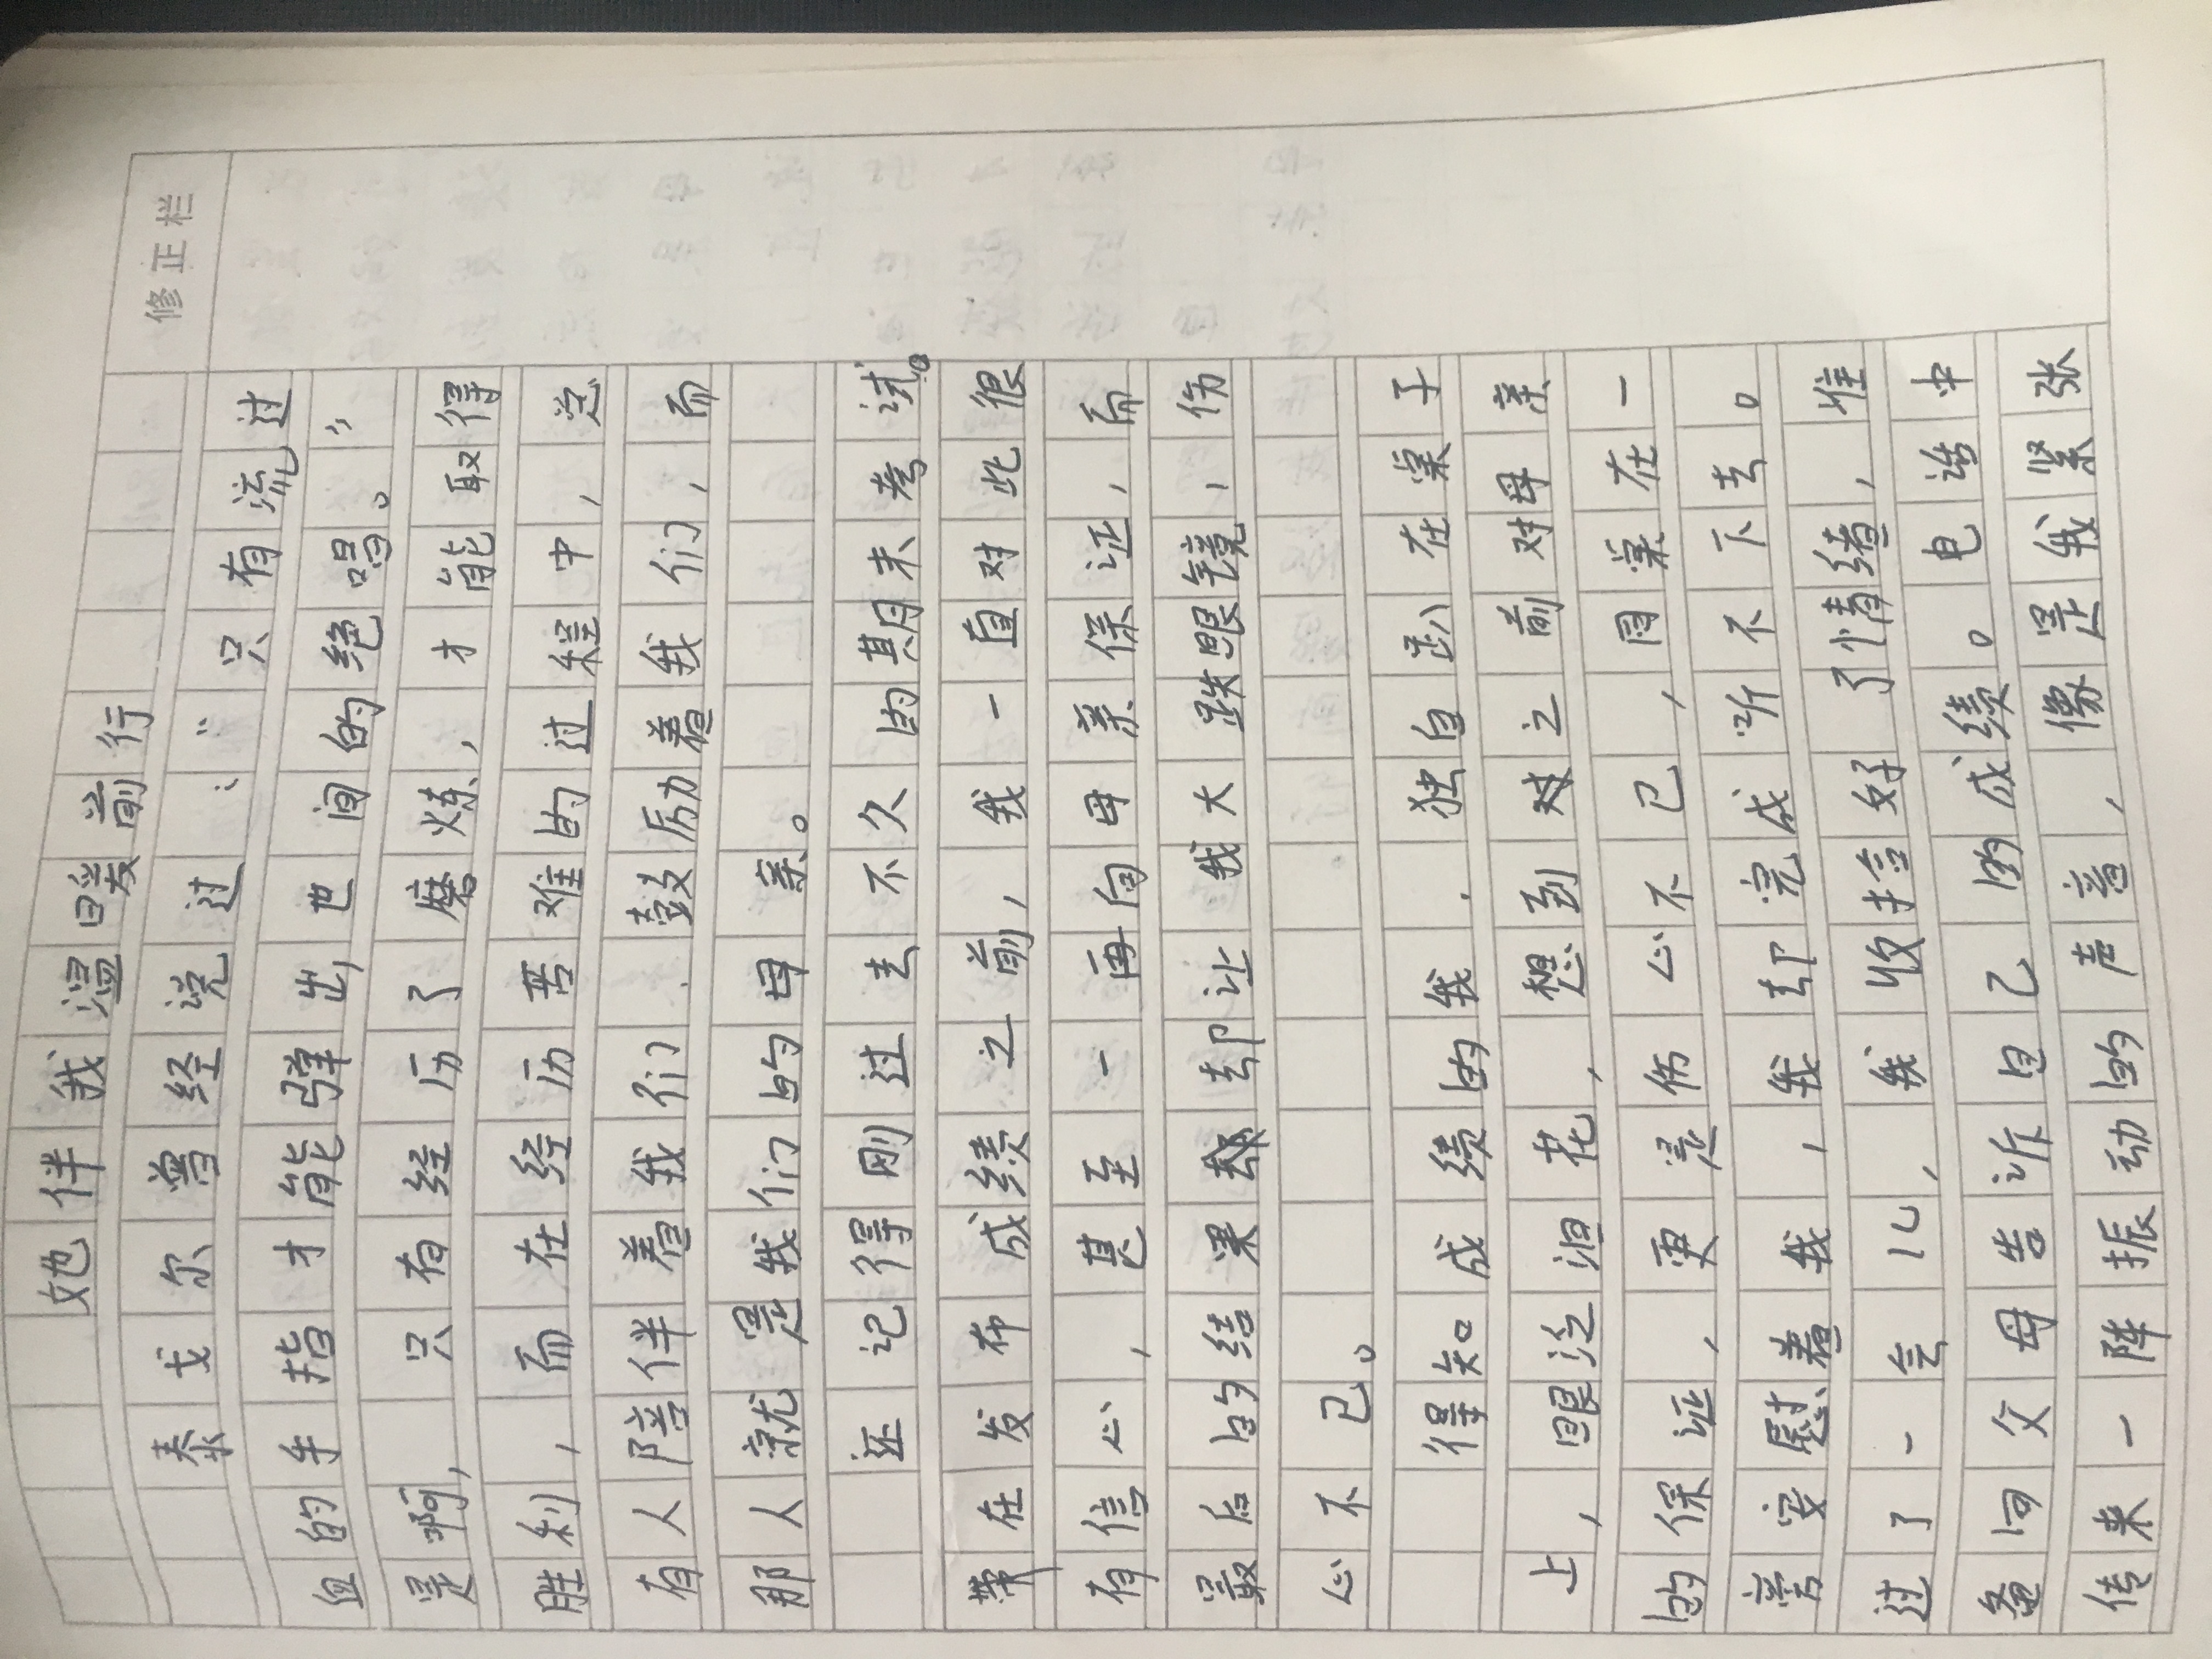 修正栏
她伴我温暖前行
泰戈尔曾经说过:“只有流过
血的手指才能弹出世间的绝唱。”
是啊,只有经历了磨炼,才能取得
胜利,而在经历苦难的过程中,总
有人陪伴着我们.鼓厉着我们,而
那人就是我们的母亲。
还记得刚过去不久的期末考试。
在发布成绩之前,我一直对此很
有信心,甚至一再向母亲保证,而
最后的结果却让我大跌眼镜,伤
心不已。
得知成绩的我.独自趴在桌子
上,眼泛泪花,想到之前对母亲
的保证,更是伤心不已,同桌在一
旁安慰着我,我却完成听不下去。
过了一会儿,我收拾好了情绪,准
备回父母告诉自己的成绩。电话中
传来一阵振动的声音,像是我紧张